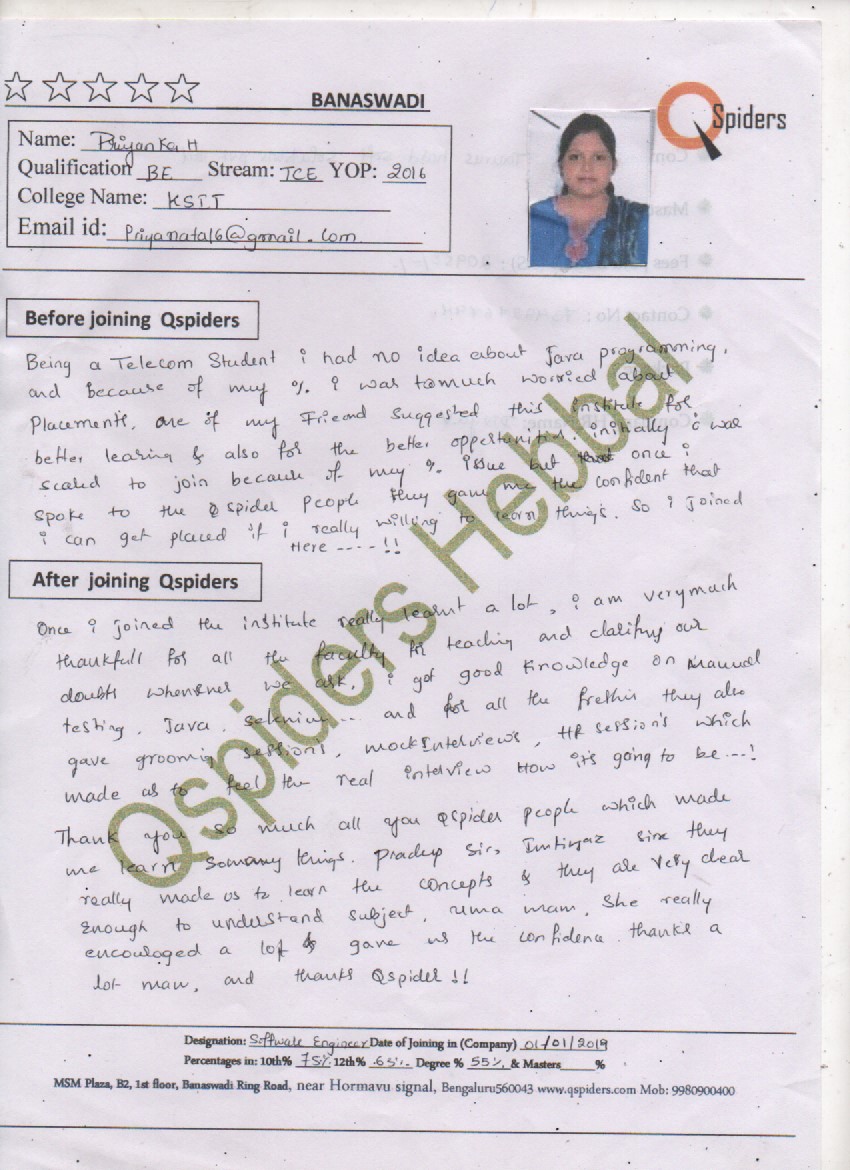 BANASWADI
QSpiders
Name: Priyanka H
Qualification BE Stream: TCE YOP: 2016
College Name: KSIT
Email id: Priyanata16@gmail.com
Before joining Qspiders
Being a Telecom Student i had no idea about Java programming,
and because of my % i was tomuch worried about
Placements, one of my Friend suggested this institute for
better learing & also for the better oppertunities. initially i was
scared to join because of my % issue but once i
spoke to the Qspider people they gave me the confident that
i can get placed if i really willing to learn things. So i joined
Here ----!!
After joining Qspiders
Once i joined the institute really learnt a lot, i am verymuch
thankfull for all the faculty for teaching and clarifing our
doubts whenever we ask, i got good knowledge on manual
testing, Java, selenium... and for all the freshers they also
gave grooming session's, mockInterviews, HR session's which
made us to feel the real interview How it's going to be...!
Thank you so much all you Qspider people which made
me learn somany things. Pradeep Sir, Imtiyaz sir they
really made us to learn the concepts & they are very clear
enough to understand subject, uma mam, She really
encouraged a lot & gave us the confidence. thanks a
lot mam, and thanks Qspider !!
Qspiders Hebbal
Designation: Software Engineer Date of Joining in (Company) 01/01/2019
Percentages in: 10th% 75% 12th% 65% Degree % 55% & Masters %
MSM Plaza, B2, 1st floor, Banaswadi Ring Road, near Hormavu signal, Bengaluru560043 www.qspiders.com Mob: 9980900400